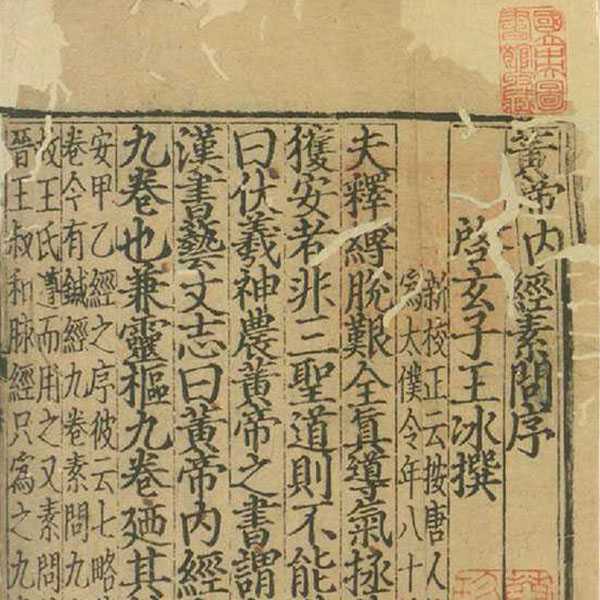 黃帝内經素問序
啓玄子王冰撰
新校正云按唐人
爲太僕令年八十
夫釋縛脫艱全眞導氣拯
獲安者非三聖道則不能
曰伏羲神農黃帝之書謂
漢書藝文志曰黃帝内經
九卷也兼靈樞九卷廼其
安甲乙經之序彼云七略
卷今有鍼經九卷素問九
故王氏遵而用之又素問
晉王叔和脉經只爲之九